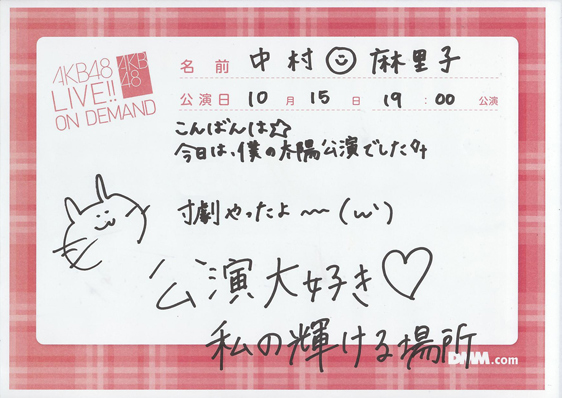 AKB48
LIVE!!
ON DEMAND
AKB
48
名前 中村☺麻里子
公演日 10月 15日 19:00 公演
こんばんは☆
今日は、僕の太陽公演でした
寸劇やったよ〜(ω')
公演大好き♡
私の輝ける場所
DMM.com